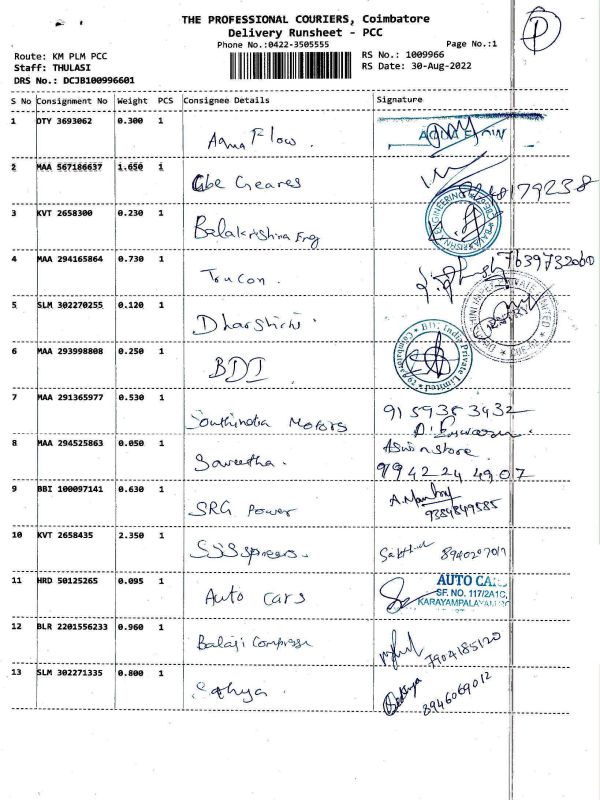 THE PROFESSIONAL COURIERS, Coimbatore
Delivery Runsheet - PCC
Phone No.:0422-3505555
Page No.:1
Route: KM PLM PCC
Staff: THULASI
DRS No.: DCJB100996601
RS No.: 1009966
RS Date: 30-Aug-2022
S No Consignment No Weight PCS Consignee Details Signature
1 OTY 3693062 0.300 1 Aqua Flow.
2 MAA 567186637 1.650 1 Geares
3 KVT 2658300 0.230 1 Balakrishna Eng
4 MAA 294165864 0.730 1 Trucon. 7639732060
5 SLM 302270255 0.120 1
6 MAA 293998808 0.250 1 BDI
BDI India Private Limited * Coimbatore *
7 MAA 291365977 0.530 1 Southindia Motors 9159353432
8 MAA 294525863 0.050 1 Saveetha. Aswin store
9942244907
9 BBI 100097141 0.630 1 SRG Power
9384849585
10 KVT 2658435 2.350 1
11 HRD 50125265 0.095 1 Auto cars
AUTO CA
SF. NO. 117/2A1C,
KARAYAMPALAYAM
12 BLR 2201556233 0.960 1 Balaji 7904185120
13 SLM 302271335 0.800 1 Sathya. Sathya
8946069012